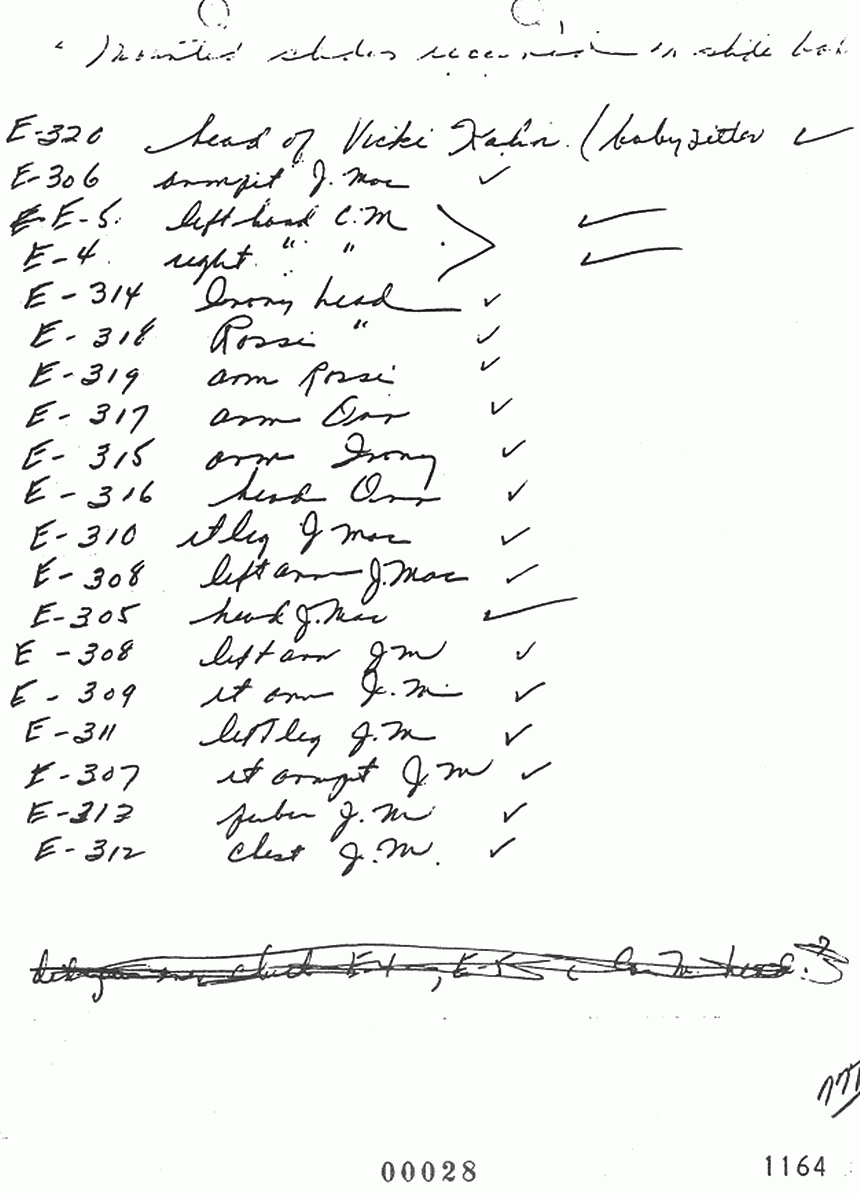 " Mounted slides in slide box
E-320 head of Vicki Kalin. (babysitter ✓
E-306 armpit J. Mac ✓
E-5. left hand C.M ✓
E-4. right " " ✓
E-314 Ivory head ✓
E-318 Rossi " ✓
E-319 arm Rossi ✓
E-317 arm Orr ✓
E-315 arm Ivory ✓
E-316 head Orr ✓
E-310 rt leg J Mac ✓
E-308 left arm J. Mac ✓
E-305 head J. Mac ✓
E-308 left arm J M ✓
E-309 rt arm J. M ✓
E-311 left leg J. M ✓
E-307 rt armpit J. M ✓
E-313 J. M ✓
E-312 chest J. M. ✓
E-4, E-5
00028 1164